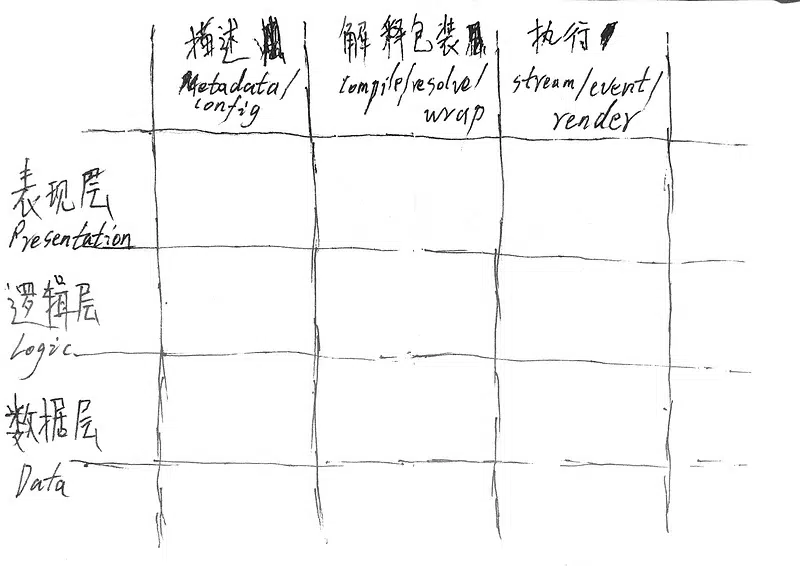 描述
Metadata/
config
解释包装
compile/resolve/
wrap
执行
stream/event/
render
表现层
Presentation
逻辑层
Logic
数据层
Data